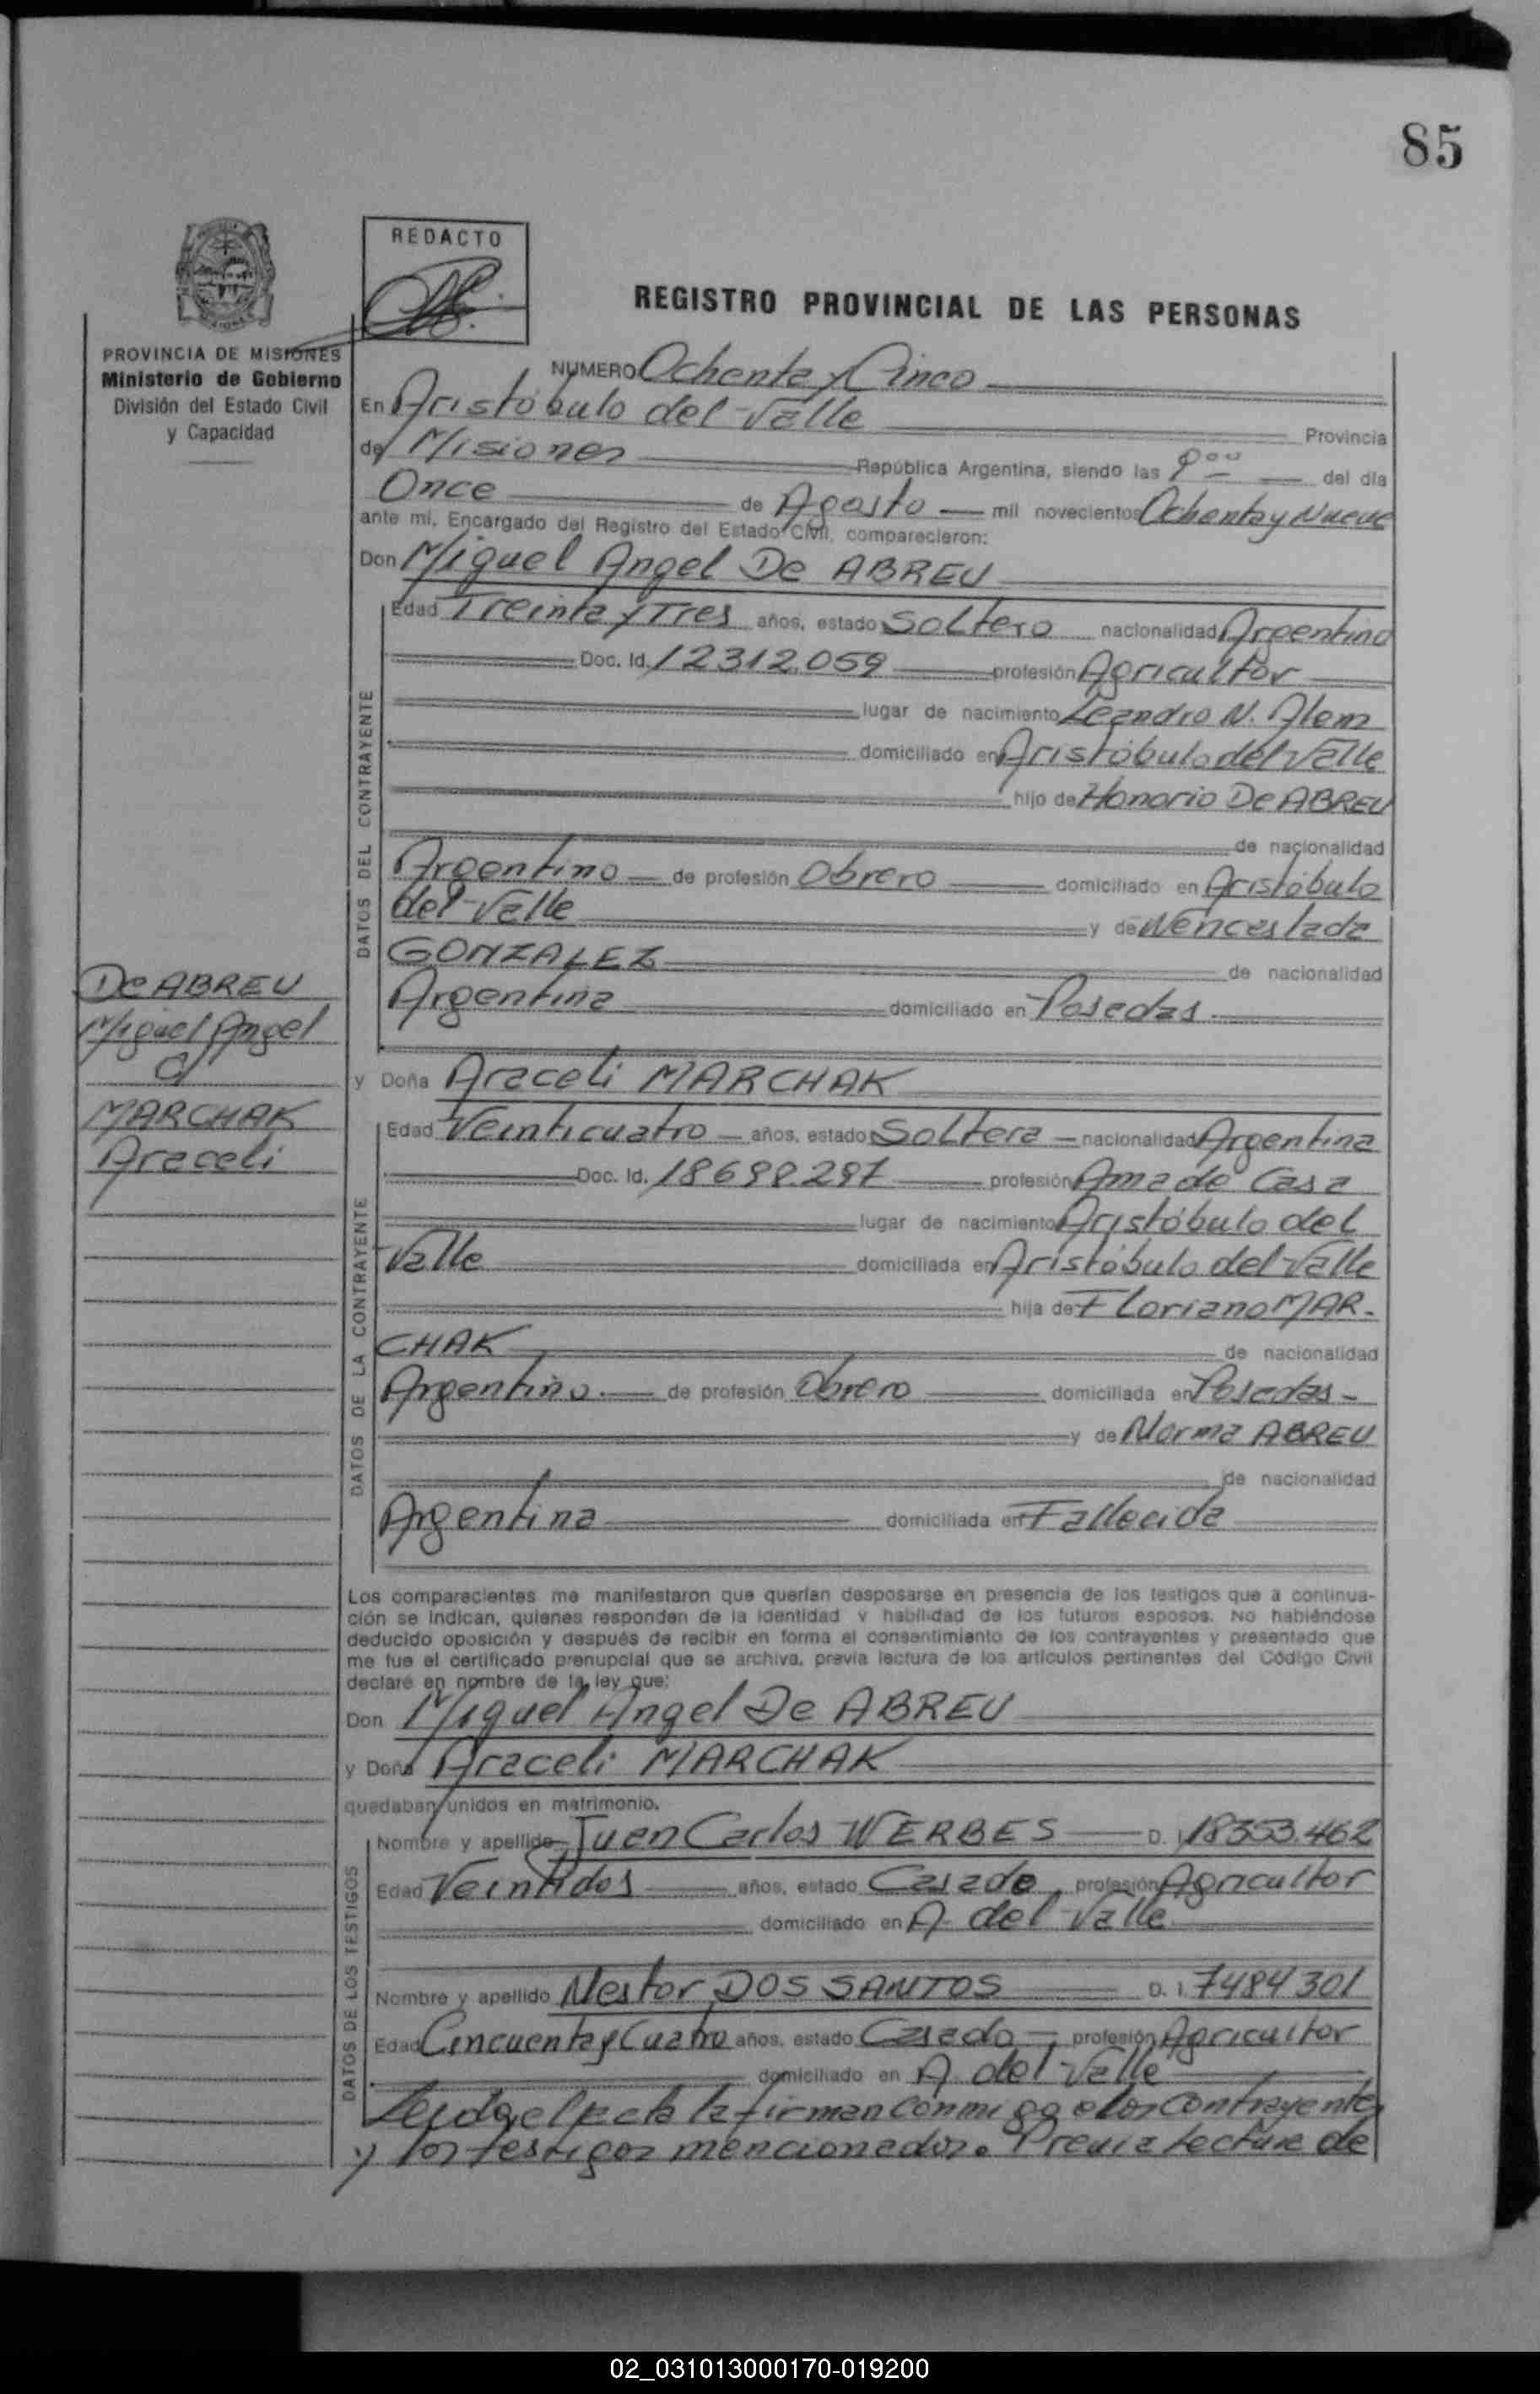 85
REDACTO
REGISTRO PROVINCIAL DE LAS PERSONAS
PROVINCIA DE MISIONES
Ministerio de Gobierno
División del Estado Civil
y Capacidad
NUMERO Ochenta y Cinco
En Aristóbulo del Valle Provincia
de Misiones República Argentina, siendo las del día
Once de Agosto mil novecientos Ochenta y Nueve
ante mi, Encargado del Registro del Estado Civil, comparecieron:
Don Miguel Angel De ABREU
Edad Treinta y Tres años, estado Soltero nacionalidad Argentino
Doc. Id. 12312.059 profesión Agricultor
lugar de nacimiento Leandro N. Alem
domiciliado en Aristóbulo del Valle
hijo de Honorio De ABREU
de nacionalidad
Argentino de profesión Obrero domiciliado en Aristóbulo
del Valle y de Wenceslada
GONZALEZ de nacionalidad
Argentina domiciliado en Posadas
DATOS DEL CONTRAYENTE
De ABREU
Miguel Angel
c/
MARCHAK
Araceli
y Doña Araceli MARCHAK
Edad Veinticuatro años, estado Soltera nacionalidad Argentina
Doc. Id. 18699.297 profesión Ama de Casa
lugar de nacimiento Aristóbulo del
Valle domiciliada en Aristóbulo del Valle
hija de Floriano MAR-
CHAK de nacionalidad
Argentino. de profesión Obrero domiciliada en Posadas-
y de Norma ABREU
de nacionalidad
Argentina domiciliada en Fallecida
DATOS DE LA CONTRAYENTE
Los comparecientes me manifestaron que querían desposarse en presencia de los testigos que a continua-
ción se indican, quienes responden de la identidad y habilidad de los futuros esposos. No habiéndose
deducido oposición y después de recibir en forma el consentimiento de los contrayentes y presentado que
me fue el certificado prenupcial que se archiva, previa lectura de los artículos pertinentes del Código Civil
declaré en nombre de la ley que:
Don Miguel Angel De ABREU
y Doña Araceli MARCHAK
quedaban unidos en matrimonio.
Nombre y apellido Juan Carlos WERBES D. I. 18353.462
Edad Veintidos años, estado Casado profesión Agricultor
domiciliado en A. del Valle
Nombre y apellido Nestor DOS SANTOS D. I. 7484301
Edad Cincuenta y Cuatro años, estado Casado profesión Agricultor
domiciliado en A. del Valle
DATOS DE LOS TESTIGOS
Leida el acta la firman conmigo los contrayentes
y los testigos mencionados. Previa lectura de
02_031013000170-019200